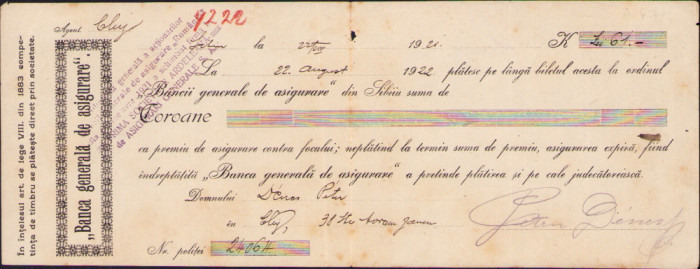 În înțelesul art. de lege VII. din 1883 compe-
tința de timbru se plătește direct prin societate.
Agent Cluj
9222
„Banca generală de asigurare”.
la 1921. K 61.-
La 22. August 1922 plătesc pe lângă biletul acesta la ordinul
„Băncii generale de asigurare” din Sibiiu suma de
Coroane
ca premiu de asigurare contra focului; neplătind la termin suma de premiu, asigurarea expiră, fiind
îndreptățită „Banca generală de asigurare” a pretinde plătirea și pe cale judecătorească.
Domnului Dénes Peter
în Cluj, 38
Nr. poliței 24064.
Dénes